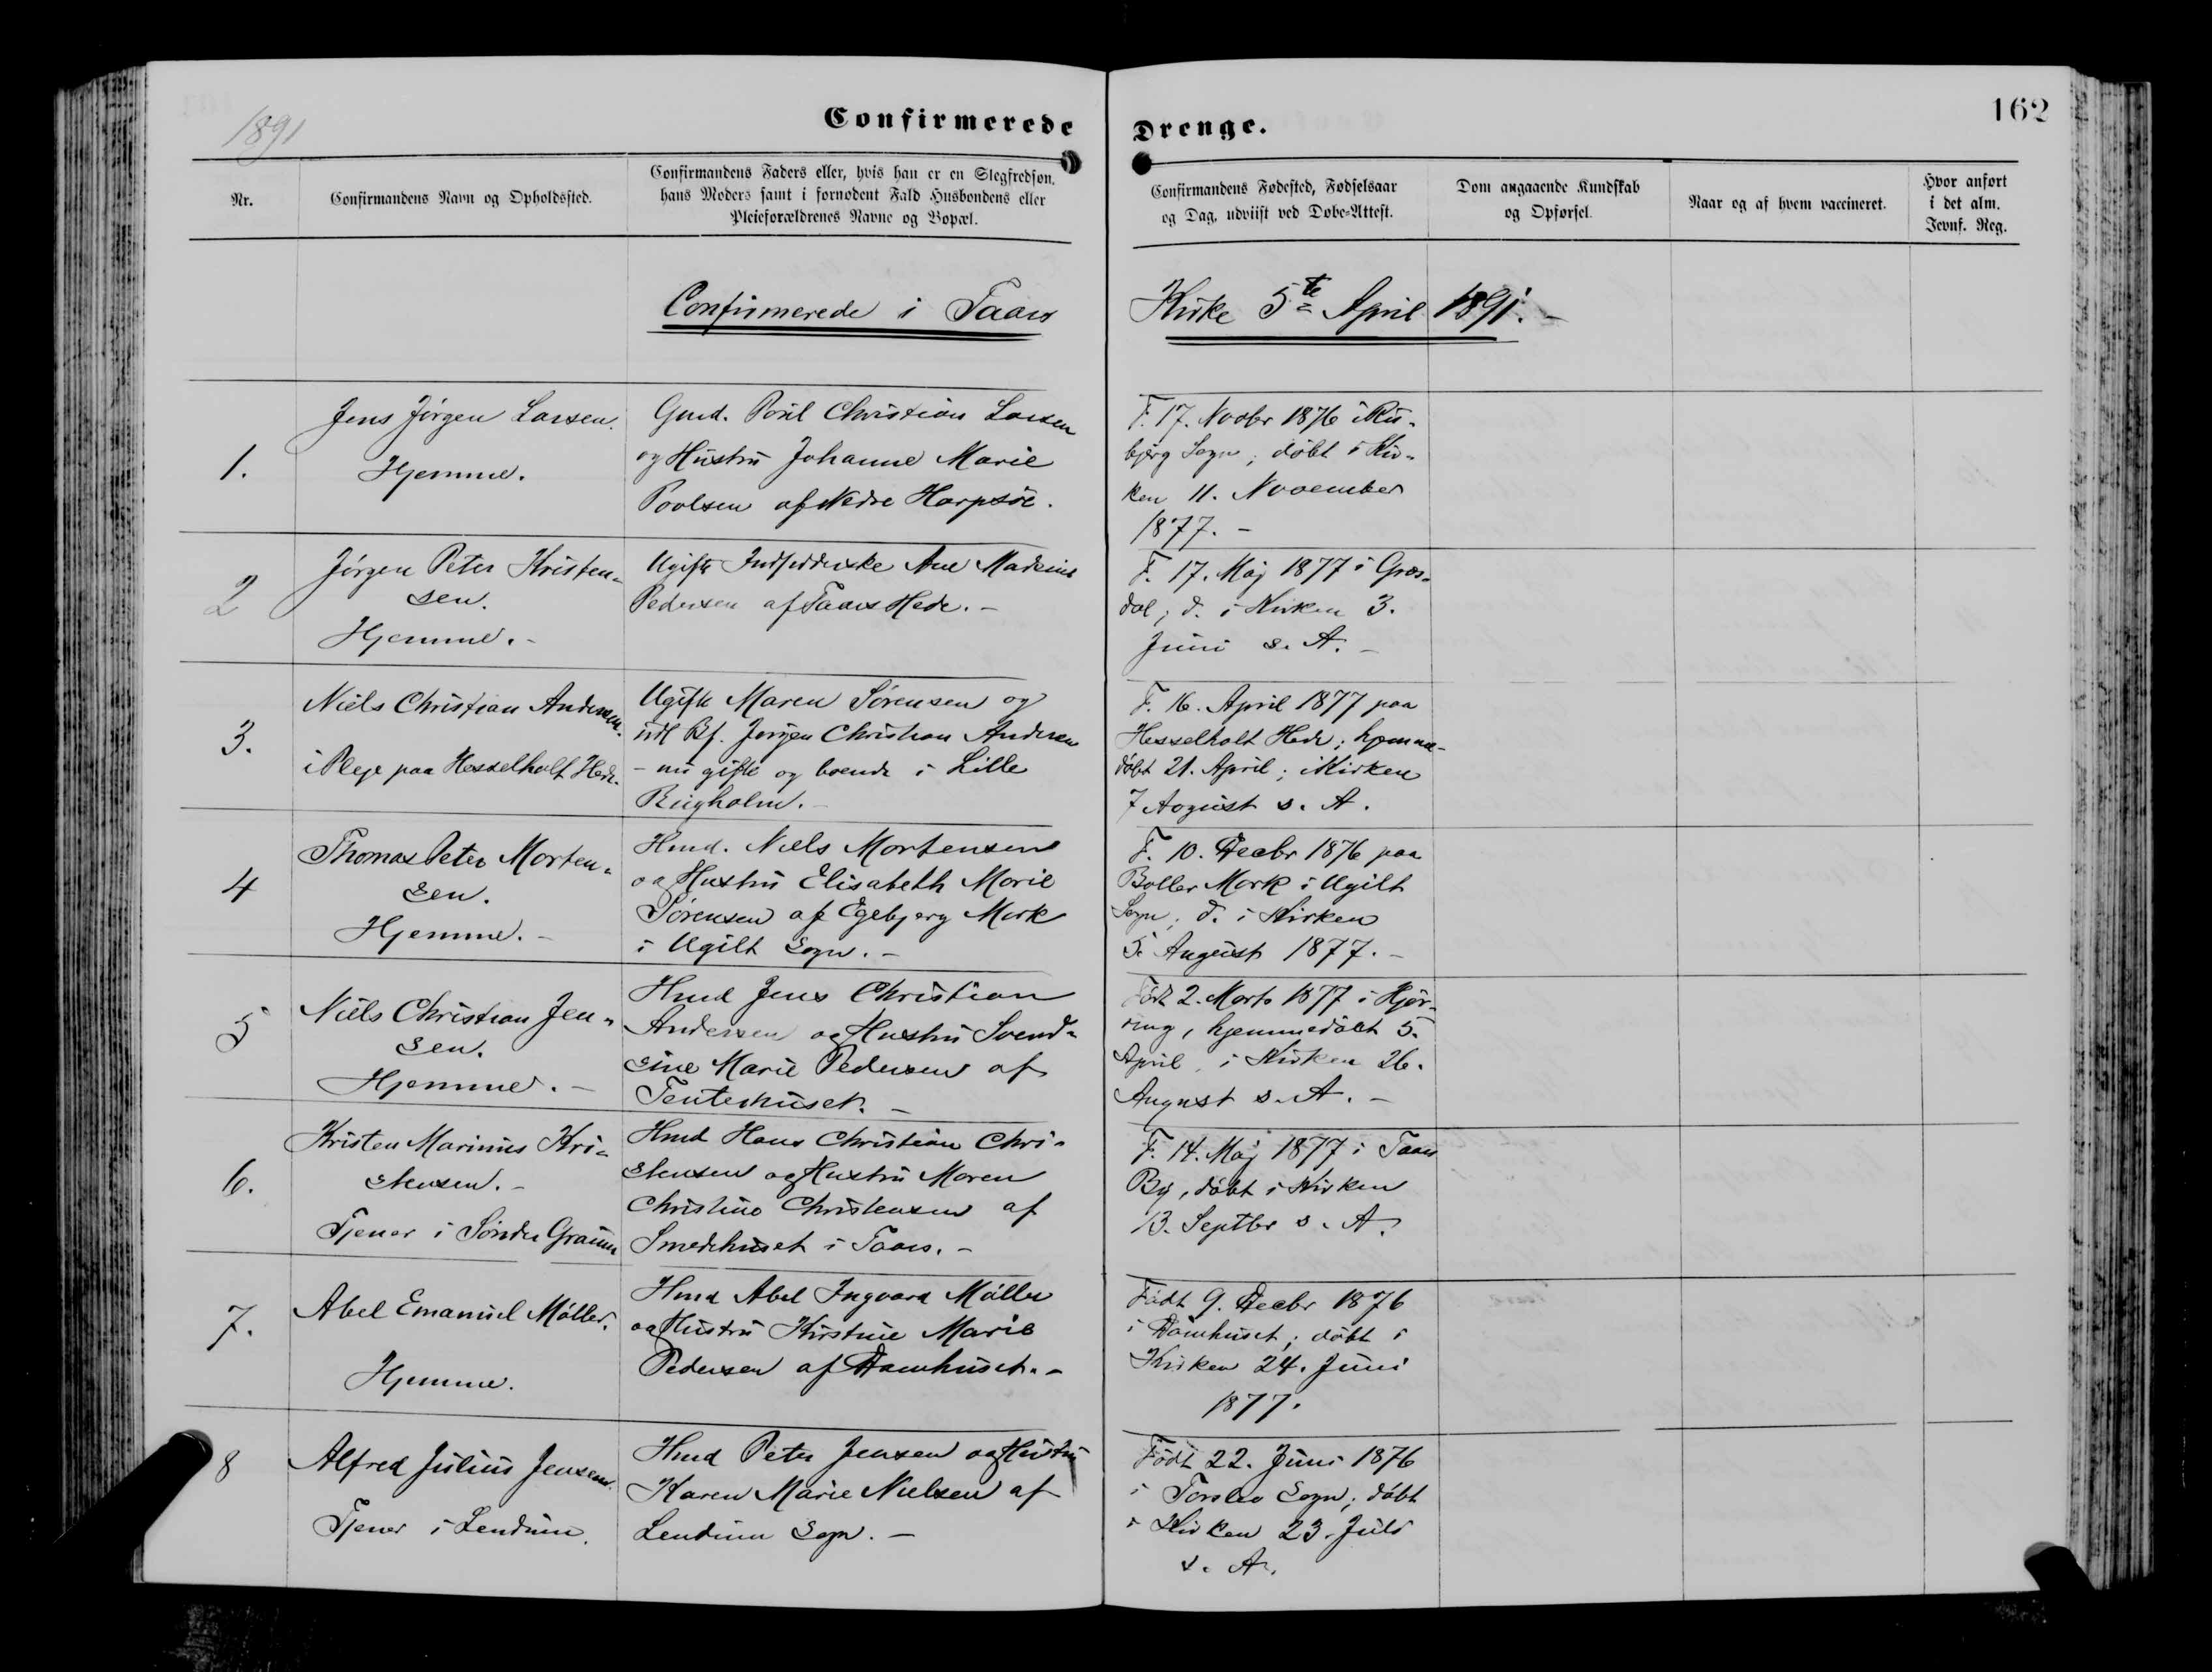 1891
Confirmerede Drenge.
162
Nr.
Confirmandens Navn og Opholdssted.
Confirmandens Faders eller, hvis han er en Slegfredsøn,
hans Moders samt i fornødent Fald Husbondens eller
Pleieforældrenes Navne og Bopæl.
Confirmandens Fødested, Fødselsaar
og Dag, udviist ved Døbe-Attest.
Dom angaaende Kundskab
og Opførsel.
Naar og af hvem vaccineret.
Hvor anført
i det alm.
Jevnf. Reg.
Confirmerede i Taars Kirke 5te April 1891.-
1.
Jens Jörgen Larsen.
Hjemme.
Gmd. Poül Christian Larsen
og Hüstrü Johanne Marie
Povlsen af Nedre Harpsöe.
F. 17. Novbr 1876 i Rü-
bjerg Sogn; döbt i Kir-
ken 11. November
1877. -
2
Jörgen Peter Kristen-
sen.
Hjemme. -
Ugifte Indsidderske Ane Madsine
Pedersen af Taars Hede. -
F. 17. Maj 1877 i Græs-
dal; d. i Kirken 3.
Jüni s. A. -
3.
Niels Christian Andersen.
i Pleje paa Hesselholt Hede.
Ugifte Maren Sörensen og
üdl Bf. Jörgen Christian Andersen
- nü gifte og boende i Lille
Bügholm. -
F. 16. April 1877 paa
Hesselholt Hede; hjemme-
döbt 21. April; i Kirken
7 Avgüst s. A.
4
Thomas Peter Morten-
sen.
Hjemme. -
Hmd. Niels Mortensen
og Hustrü Elisabeth Marie
Sörensen af Egebjerg Mark
i Ugilt Sogn. -
F. 10. Decbr 1876 paa
Boller Mark i Ugilt
Sogn; d. i Kirken
5. Augüst 1877. -
5
Niels Christian Jen-
sen.
Hjemme. -
Hmd Jens Christian
Andersen og Hustrü Svend-
sine Marie Pedersen af
Tenterhüset. -
Födt 2. Marts 1877 i Hjör-
ring, hjemmedöbt 5.
April, i Kirken 26.
August s. A. -
6.
Kristen Marinüs Kri-
stensen. -
Tjener i Sönder Graüm
Hmd Hans Christian Chri-
stensen og Hustrü Maren
Christine Christensen af
Smedehuset i Taars. -
F. 14. Maj 1877 i Taars
By, döbt i Kirken
13. Septbr s. A.
7.
Abel Emanüel Möller.
Hjemme.
Hmd Abel Ingvard Möller
og Hüstrü Kirstine Marie
Pedersen af Damhuset. -
Födt 9. Decbr 1876
i Damhuset; döbt i
Kirken 24. Jüni
1877.
8
Alfred Jülius Jensen.
Tjener i Lendüm.
Hmd Peter Jensen og Hüstrü
Karen Marie Nielsen af
Lendum Sogn. -
Födt 22. Jüni 1876
i Torslev Sogn; döbt
i Kirken 23. Jüli
s. A.